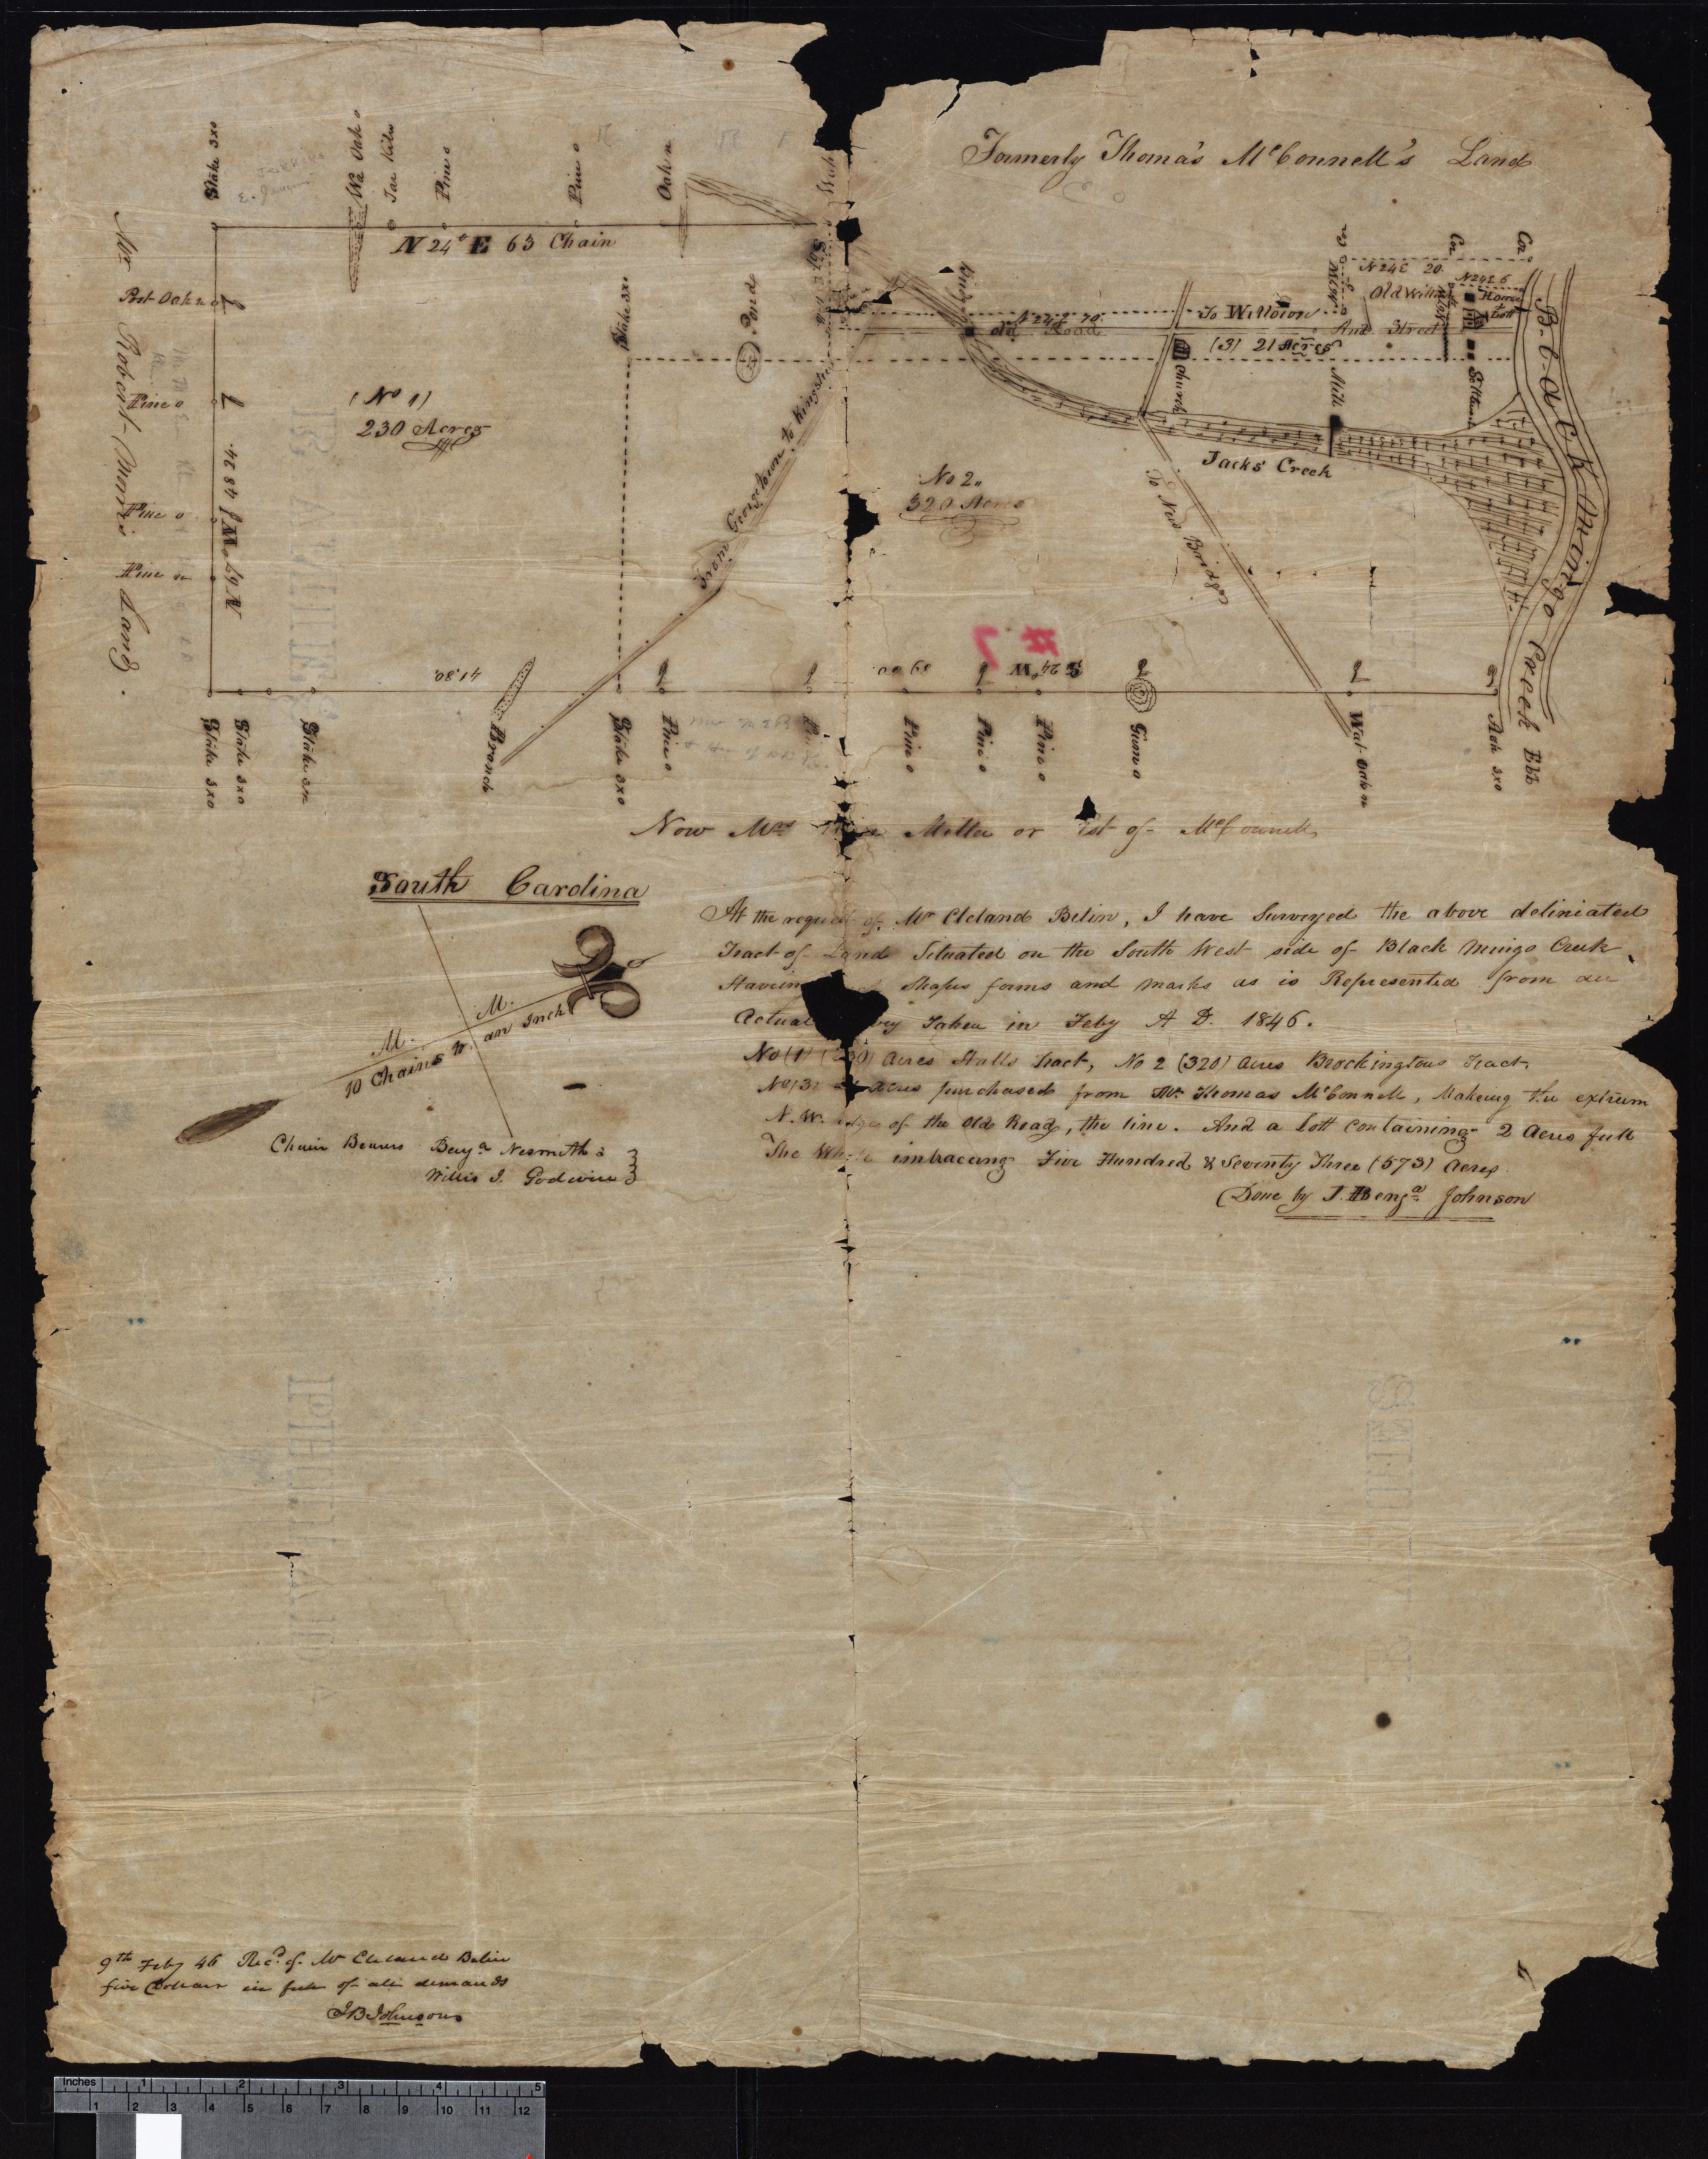 Formerly Thomas McConnell's Land
Stake 3xo
Wr Oak o
Tar Kiln
Pine o
Pine o
Oak
N 24° E 63 Chain
Mr Robert Morris Land.
Post Oak
Pine o
Pine o
Pine
N 67° W 48 34
(No 1)
230 Acres
Stake 3xo
Pond
From Georgetown to Kingstree
Old Road
N 24 E 70
To Willtown
And Street
(3) 21 Acres
N 24 E 20.
N 24 E 6
Cor
Cor
Old Will
House
Lott
Church
Mill
Jacks Creek
Black Mingo Creek Ebb
No 2.
320 Acres
To New Bridge
# 7
41.80.
69 00
S 24° W
Stake 3xo
Stake 3xo
Stake
Branch
Stake 3xo
Pine o
Pine o
Pine o
Pine o
Gum o
Wat Oak
Ash 3xo
Now Mrs Miller or Est of McConnell
South Carolina
M. M.
10 Chains to an Inch
Chain Bearers Benjn Nesmith
Willis J. Godwin
At the request of Mr Cleland Belin, I have Surveyed the above deliniated
Tract of Land Situated on the South West side of Black Mingo Creek
Having Shapes forms and marks as is Represented from an
Actual Taken in Feby A D. 1846.
No (1) (230) Acres Stalls Tract, No 2 (320) Acres Brockingtons Tract,
No (3) Acres purchased from Mr Thomas McConnell, Making the extrem
N. W. edge of the Old Road, the line. And a Lott containing 2 Acres full
The Whole imbracing Five Hundred & Seventy Three (573) Acres
Done by J. Benja Johnson
9th Feby 46 Recd of Mr Cleland Belin
five Dollars in full of all demands
JB Johnson
Inches 1 2 3 4 5
1 2 3 4 5 6 7 8 9 10 11 12